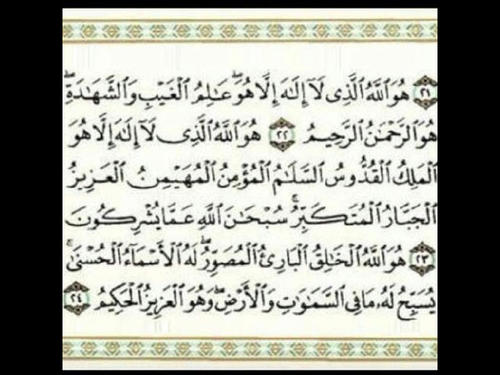 ﴿٢١﴾ هُوَ ٱللَّهُ ٱلَّذِى لَآ إِلَـٰهَ إِلَّا هُوَ ۖ عَـٰلِمُ ٱلْغَيْبِ وَٱلشَّهَـٰدَةِ ۖ
هُوَ ٱلرَّحْمَـٰنُ ٱلرَّحِيمُ ﴿٢٢﴾ هُوَ ٱللَّهُ ٱلَّذِى لَآ إِلَـٰهَ إِلَّا هُوَ
ٱلْمَلِكُ ٱلْقُدُّوسُ ٱلسَّلَـٰمُ ٱلْمُؤْمِنُ ٱلْمُهَيْمِنُ ٱلْعَزِيزُ
ٱلْجَبَّارُ ٱلْمُتَكَبِّرُ ۚ سُبْحَـٰنَ ٱللَّهِ عَمَّا يُشْرِكُونَ
﴿٢٣﴾ هُوَ ٱللَّهُ ٱلْخَـٰلِقُ ٱلْبَارِئُ ٱلْمُصَوِّرُ ۖ لَهُ ٱلْأَسْمَآءُ ٱلْحُسْنَىٰ ۚ
يُسَبِّحُ لَهُۥ مَا فِى ٱلسَّمَـٰوَٰتِ وَٱلْأَرْضِ ۖ وَهُوَ ٱلْعَزِيزُ ٱلْحَكِيمُ ﴿٢٤﴾